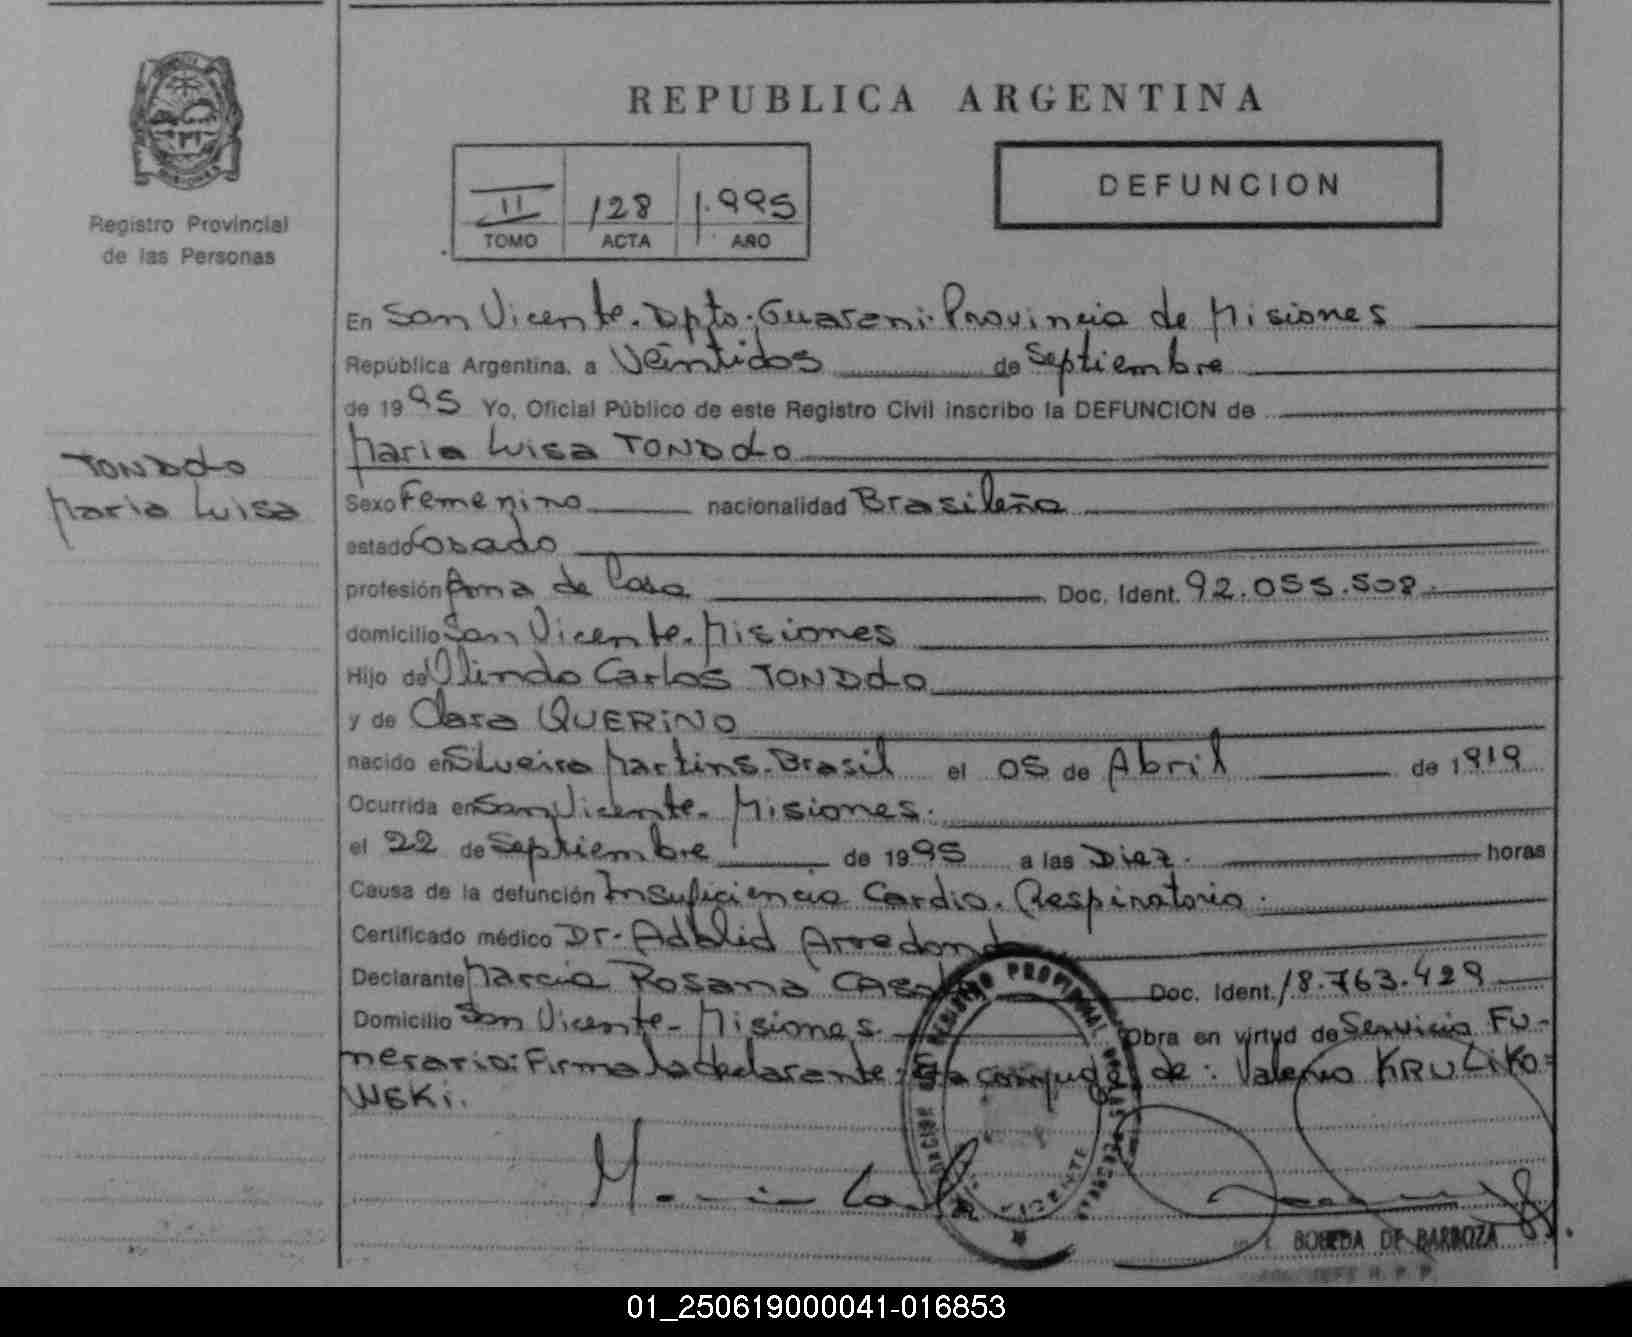 REPUBLICA ARGENTINA
II 128 1.995
TOMO ACTA AÑO
DEFUNCION
Registro Provincial
de las Personas
TONDOLO
Maria Luisa
En San Vicente. Dpto. Guarani. Provincia de Misiones
República Argentina, a Veintidos de Septiembre
de 1995 Yo, Oficial Público de este Registro Civil inscribo la DEFUNCION de
Maria Luisa TONDOLO
Sexo Femenino nacionalidad Brasileña
estado Casado
profesión Ama de Casa Doc. Ident. 92.055.508.
domicilio San Vicente. Misiones
Hijo de Olindo Carlos TONDOLO
y de Clara QUERINO
nacido en Silveira Martins. Brasil el 05 de Abril de 1919
Ocurrida en San Vicente. Misiones.
el 22 de Septiembre de 1995 a las Diez. horas
Causa de la defunción Insuficiencia Cardio. Respiratorio.
Certificado médico Dr. Arredondo
Declarante Marcia Rosana Doc. Ident. 18.763.429
Domicilio San Vicente - Misiones. Obra en virtud de Servicio Fu-
nerario: Firma la declarante: conyuge de: Valerio KRULIKO=
WSKI.
REGISTRO PROVINCIAL
BOBEDA DE BARBOZA
R. P. P.
01_250619000041-016853